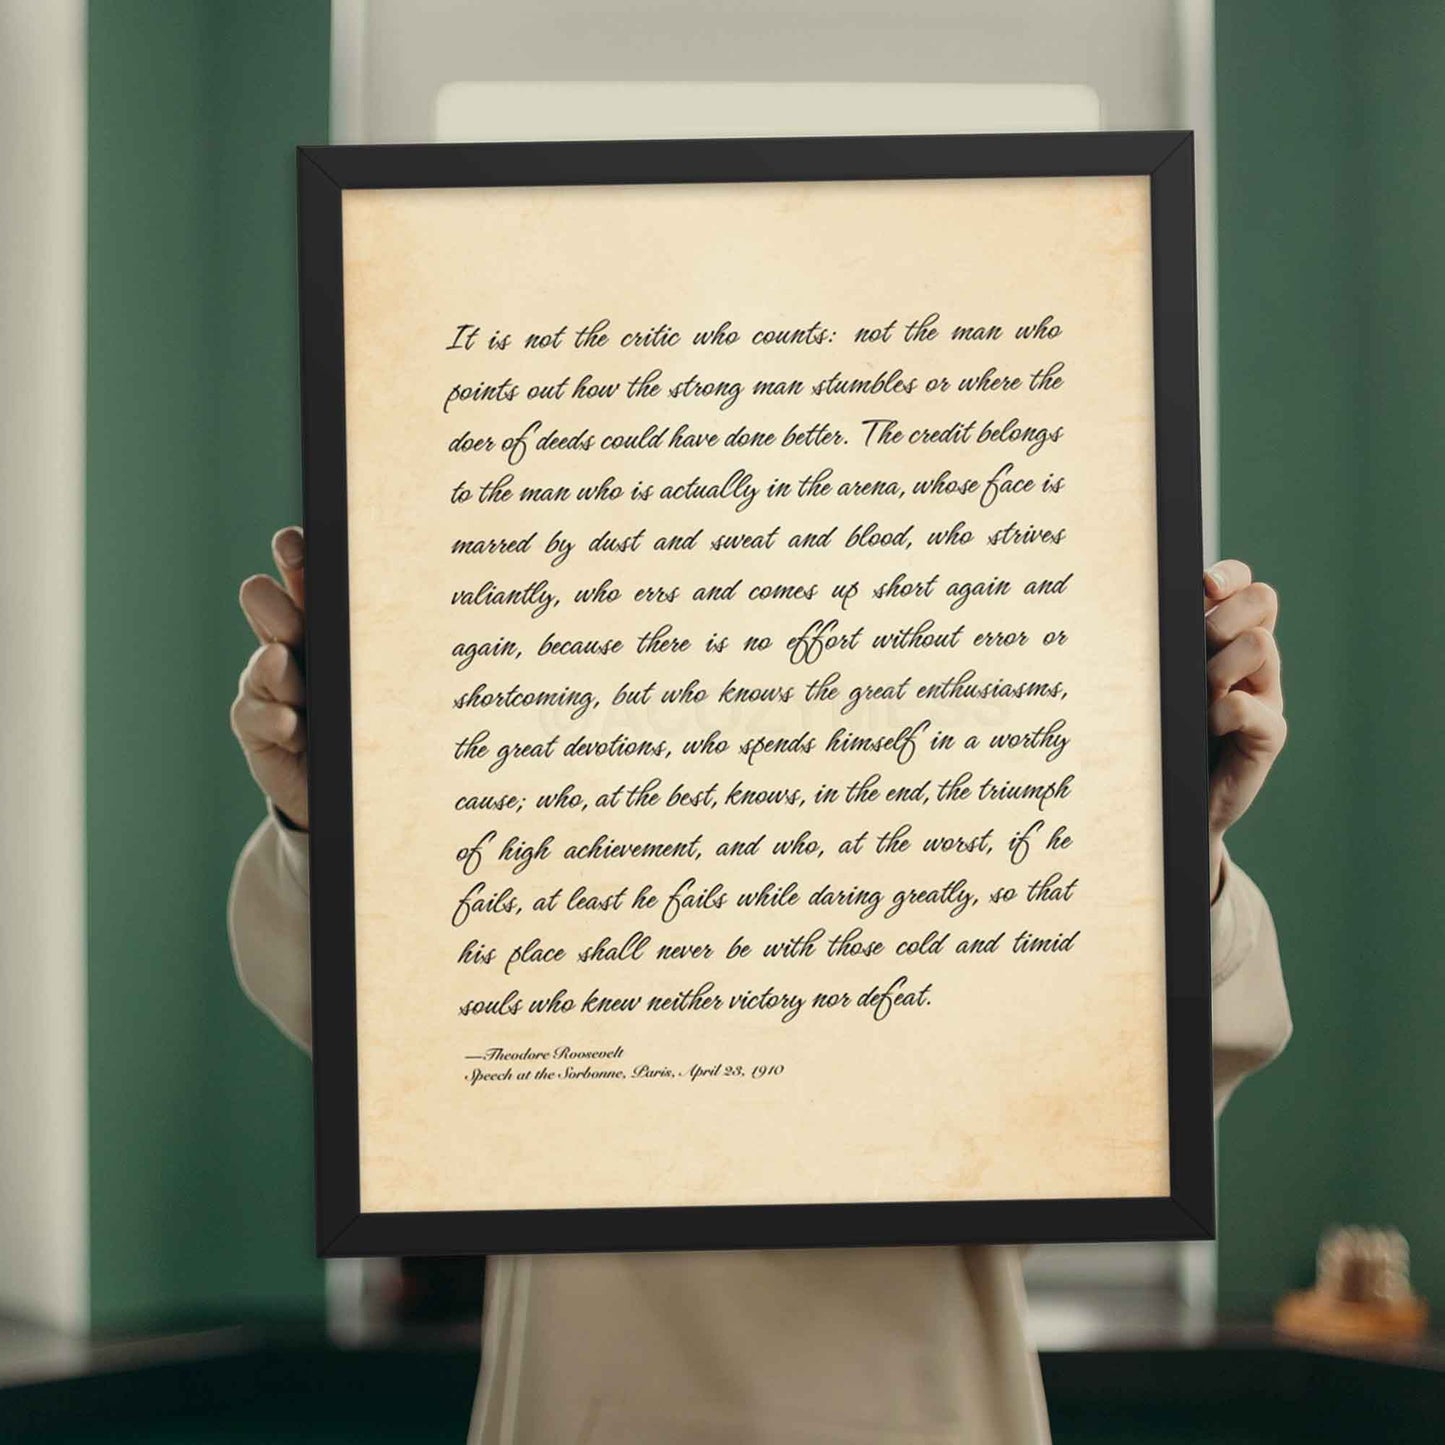 It is not the critic who counts: not the man who
points out how the strong man stumbles or where the
doer of deeds could have done better. The credit belongs
to the man who is actually in the arena, whose face is
marred by dust and sweat and blood, who strives
valiantly, who errs and comes up short again and
again, because there is no effort without error or
shortcoming, but who knows the great enthusiasms,
the great devotions, who spends himself in a worthy
cause; who, at the best, knows, in the end, the triumph
of high achievement, and who, at the worst, if he
fails, at least he fails while daring greatly, so that
his place shall never be with those cold and timid
souls who knew neither victory nor defeat.
—Theodore Roosevelt
Speech at the Sorbonne, Paris, April 23, 1910